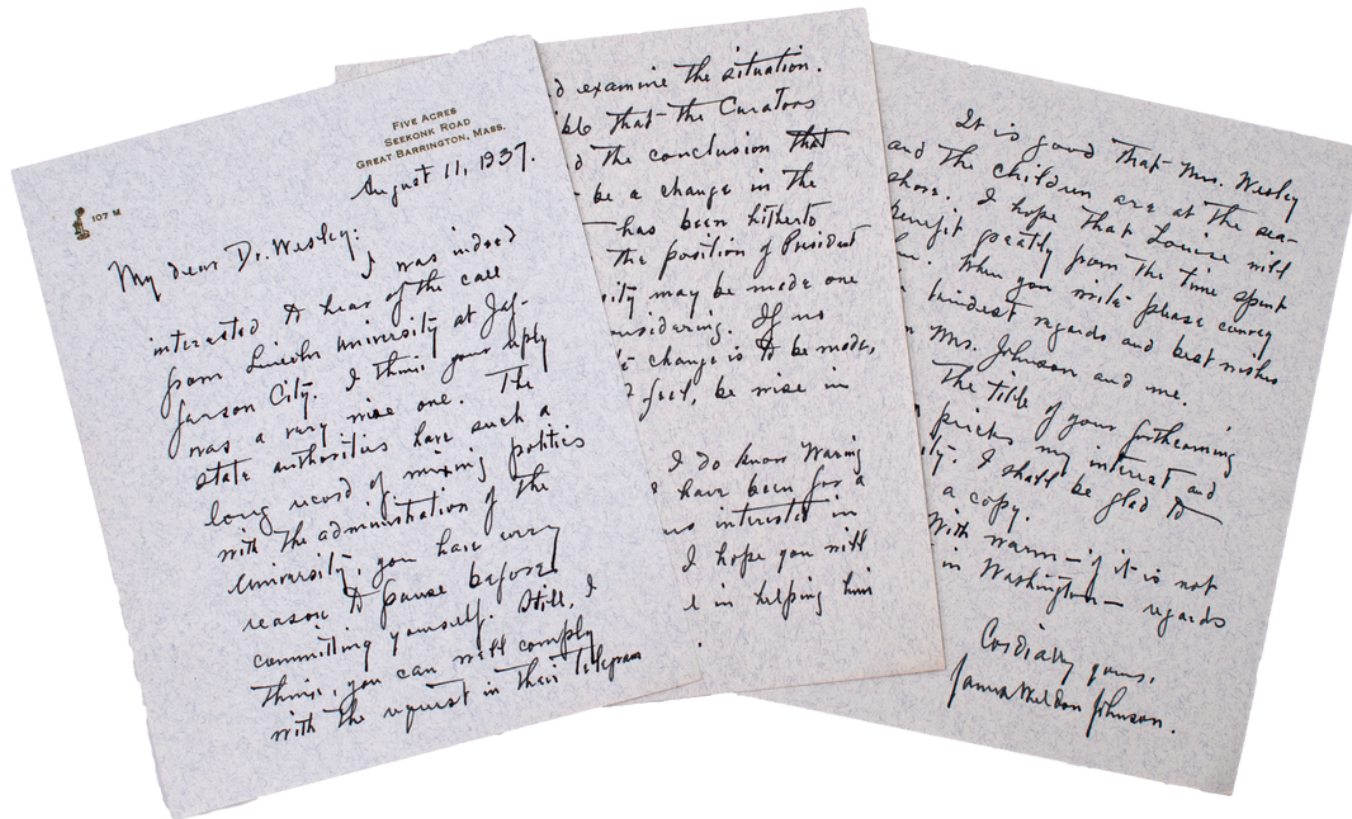 FIVE ACRES
SEEKONK ROAD
GREAT BARRINGTON, MASS.
107 M
August 11, 1937.
My dear Dr. Wesley:
I was indeed
interested to hear of the call
from Lincoln University at Jef-
ferson City. I think your reply
was a very wise one. The
state authorities have such a
long record of mixing politics
with the administration of the
University, you have every
reason to pause before
committing yourself. Still, I
think, you can well comply
with the request in their telegram
d examine the situation.
ible that the Curators
d the conclusion that
be a change in the
has been hitherto
the position of President
sity may be made one
onsidering. If no
change is to be made,
feel, be wise in
I do know Waring
have been for a
us interested in
I hope you will
in helping him
It is good that Mrs. Wesley
and the children are at the sea-
shore. I hope that Louise will
benefit greatly from the time spent
When you write please convey
kindest regards and best wishes
Mrs. Johnson and me.
The title of your forthcoming
pricks my interest and
ity. I shall be glad to
a copy.
With warm – if it is not
in Washington – regards
Cordially yours,
James Weldon Johnson.